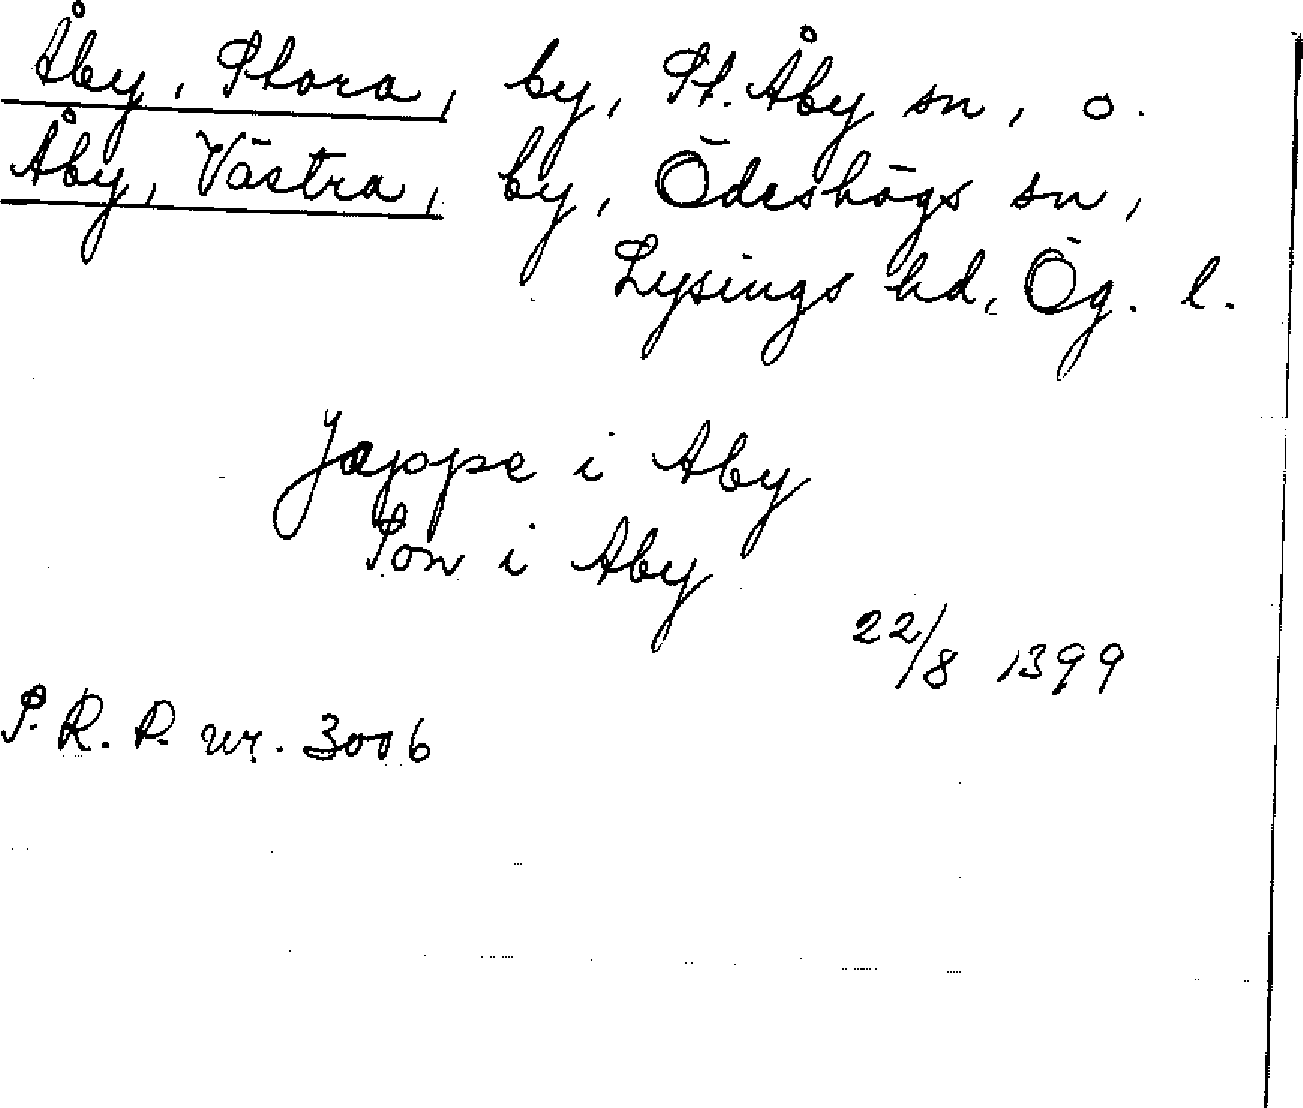 Åby, Stora, by, St. Åby sn, o.
Åby, Västra, by, Ödeshögs sn,
Lysings hd, Ög. l.
Jappe i Aby
Son i Aby
22/8 1399
S. R. P. nr. 3006